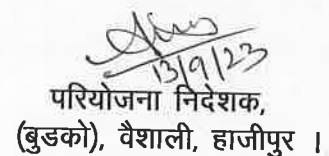 13/9/23
परियोजना निदेशक,
(बुडको), वैशाली, हाजीपुर ।